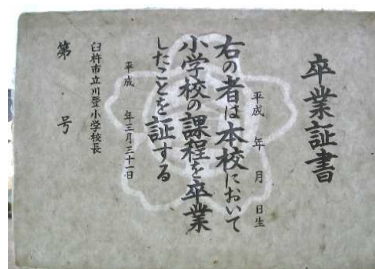 卒業証書
平成 年 月 日生
右の者は本校において
小学校の課程を卒業
したことを証する
平成 年三月三十一日
臼杵市立川登小学校長
第 号